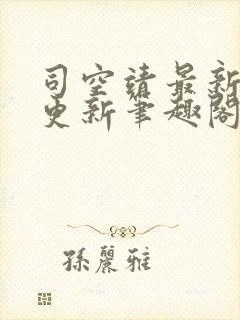 司空靖最新
更新笔趣阁
孫麗雅